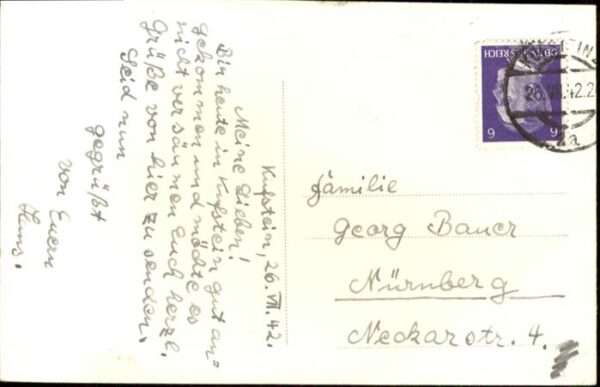 Kufstein, 26. VII. 42.
Meine Lieben!
Bin heute in Kufstein gut an=
gekommen und möchte es
nicht versäumen Euch herzl.
Grüße von hier zu senden.
Seid nun
gegrüßt
von Euern
Hans.
Familie
Georg Bauer
Nürnberg
Neckarstr. 4.
REICH
6
6
26. 42.2
2a